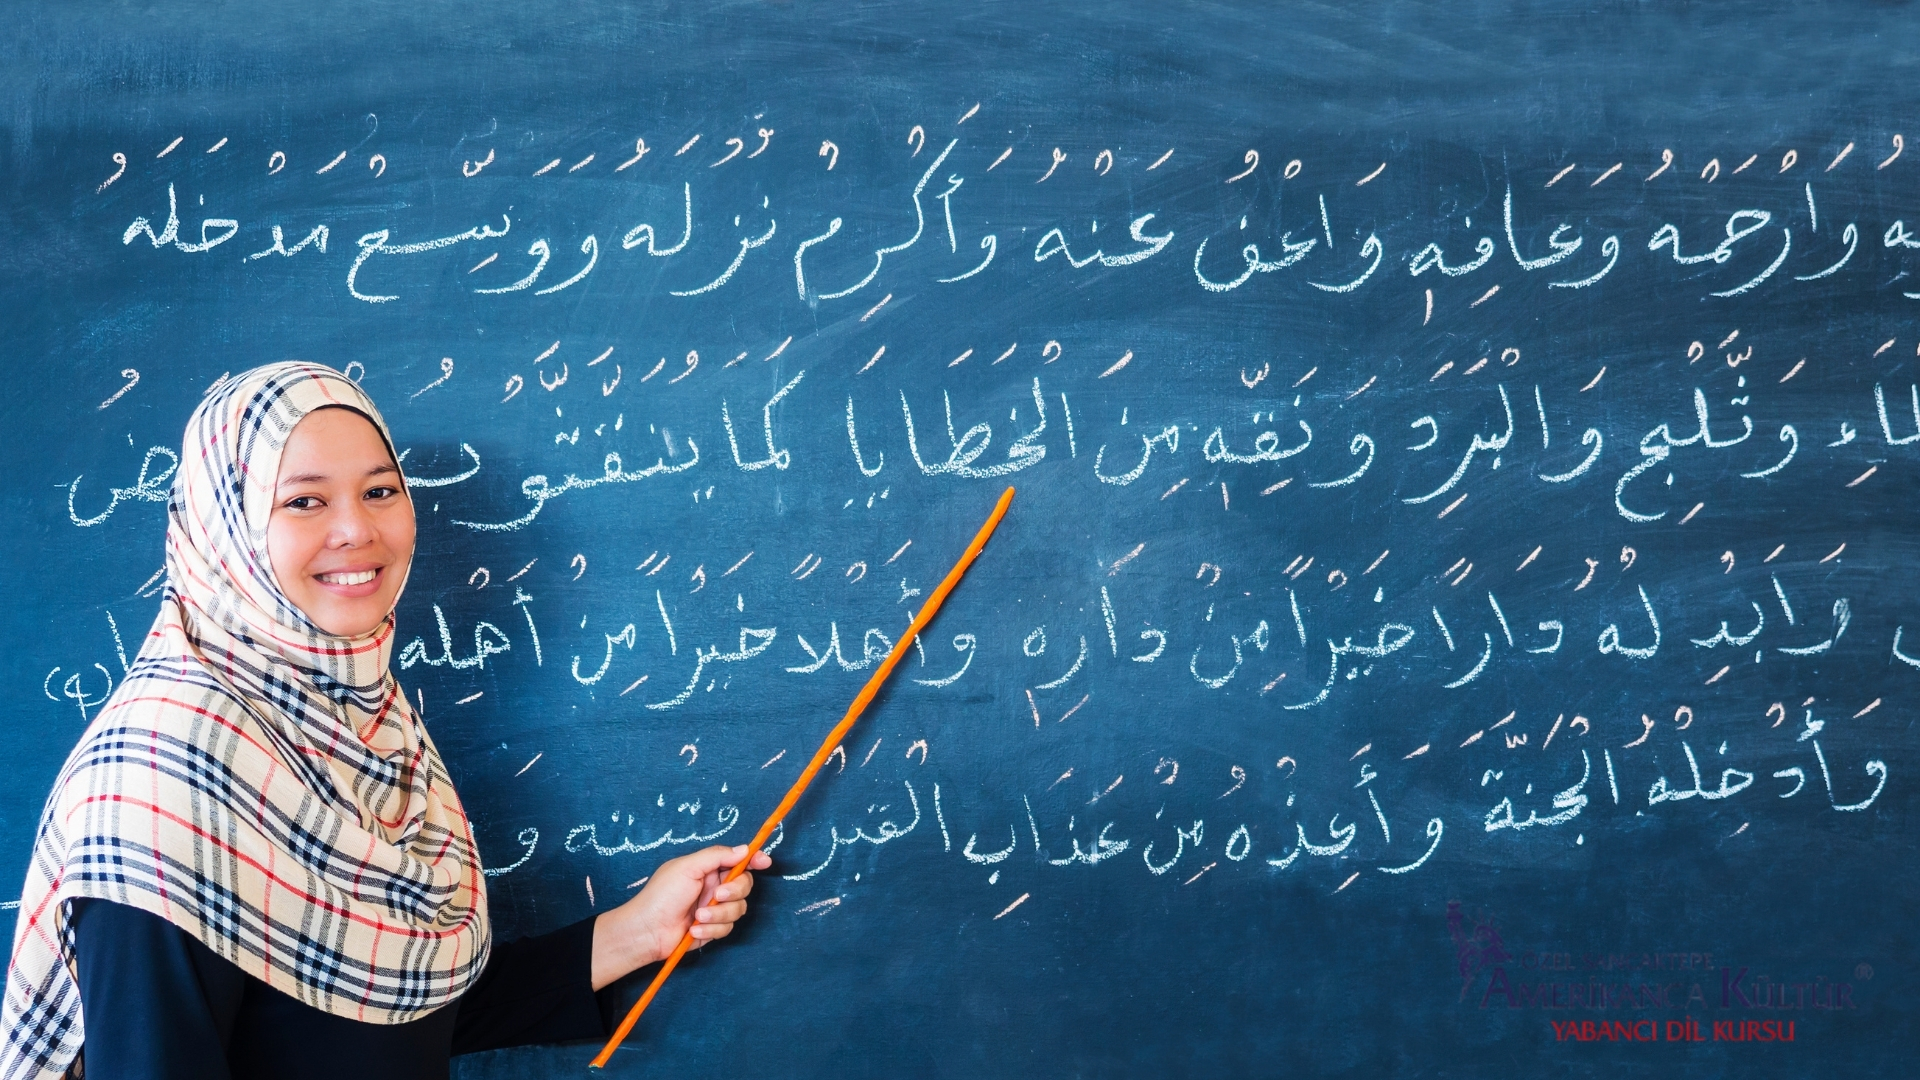 وَارْحَمْهُ وَعَافِهِ وَاعْفُ عَنْهُ وَأَكْرِمْ نُزُلَهُ وَوَسِّعْ مَدْخَلَهُ
وَثَّلْجِ وَالْبَرَدِ وَنَقِّهِ مِنَ الْخَطَايَا كَمَا
وَابَدِلْهُ دَارًا خَيْرًا مِنْ دَارِهِ وَأَهْلًا خَيْرًا مِنْ أَهْلِهِ
وَأَدْخِلْهُ الْجَنَّةَ وَأَعِذْهُ مِنْ عَذَابِ الْقَبْرِ وَفِتْنَتِهِ وَ
AMERİKANCA KÜLTÜR®
YABANCI DİL KURSU